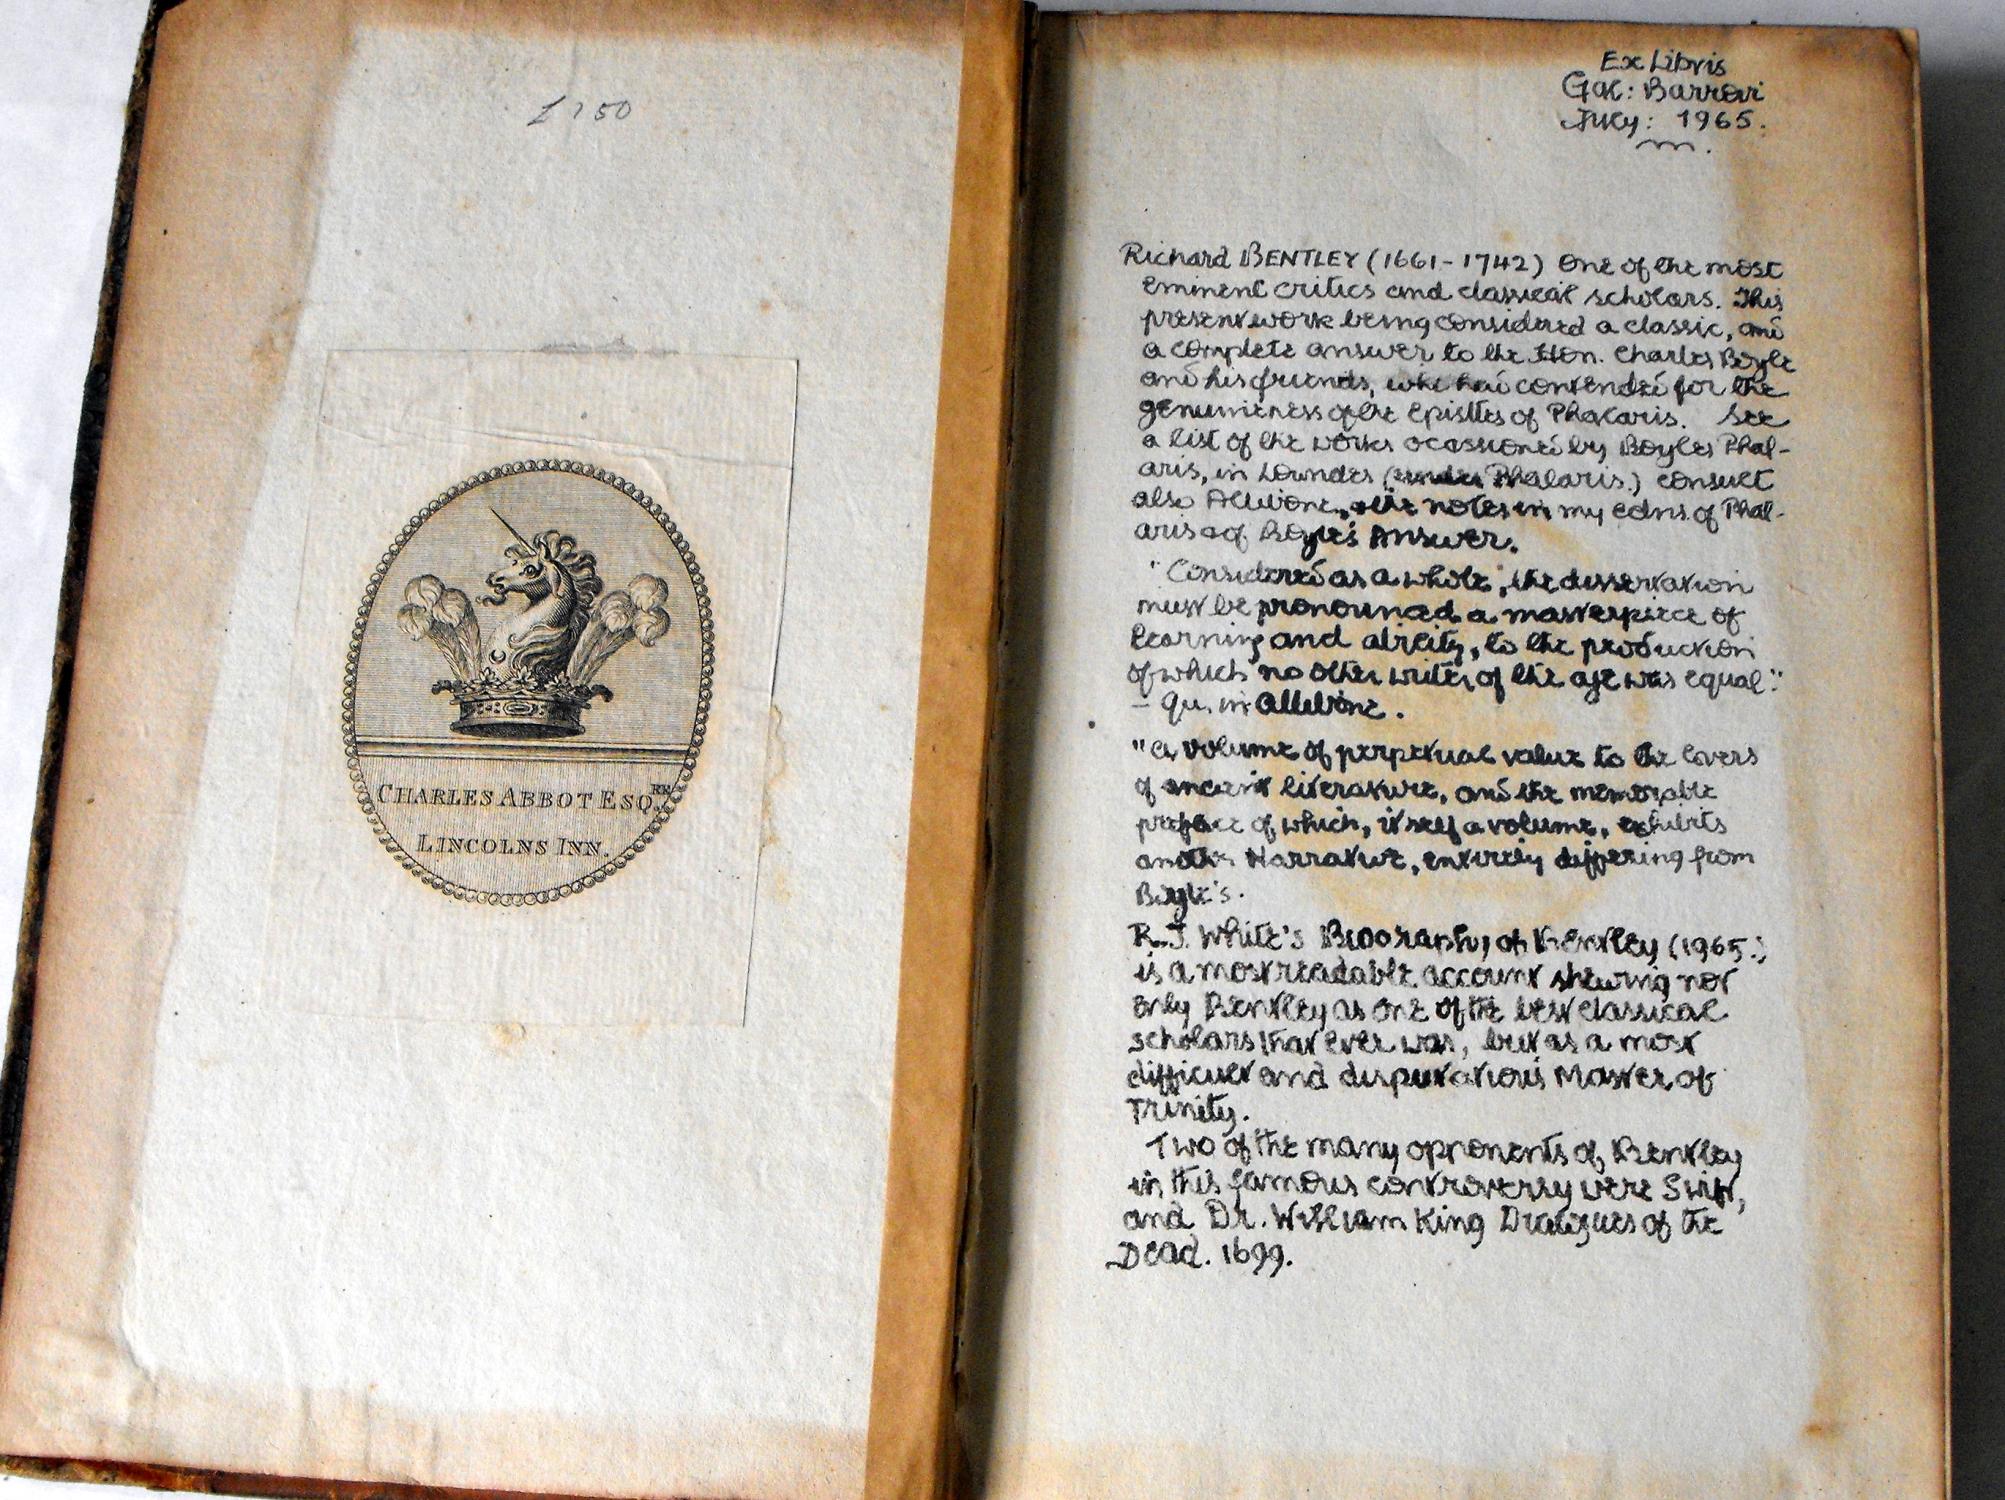 £150
CHARLES ABBOT ESQ.RE
LINCOLNS INN.
Ex Libris
July: 1965.
Richard BENTLEY (1661-1742) One of the most
eminent critics and classical scholars. This
present work being considered a classic, and
a complete answer to the Hon. Charles Boyle
and his friends, who had contended for the
genuineness of the Epistles of Phalaris. See
a list of the works ocassioned by Boyles Phal-
aris, in Lowndes (under Phalaris.) consult
also Allibone, the notes in my edns. of Phal-
aris & of Boyle's Answer.
"Considered as a whole, the dissertation
must be pronounced a masterpiece of
learning and ability, to the production
of which no other writer of the age was equal."
- Qu. in Allibone.
"a volume of perpetual value to the lovers
of ancient literature, and the memorable
preface of which, itself a volume, exhibits
another Narrative, entirely differing from
Boyle's.
R.J. White's Biography of Bentley (1965.)
is a most readable account shewing not
only Bentley as one of the best classical
scholars that ever was, but as a most
difficult and disputatious Master of
Trinity.
Two of the many opponents of Bentley
in this famous controversy were Swift,
and Dr. William King Dialogues of the
Dead. 1699.